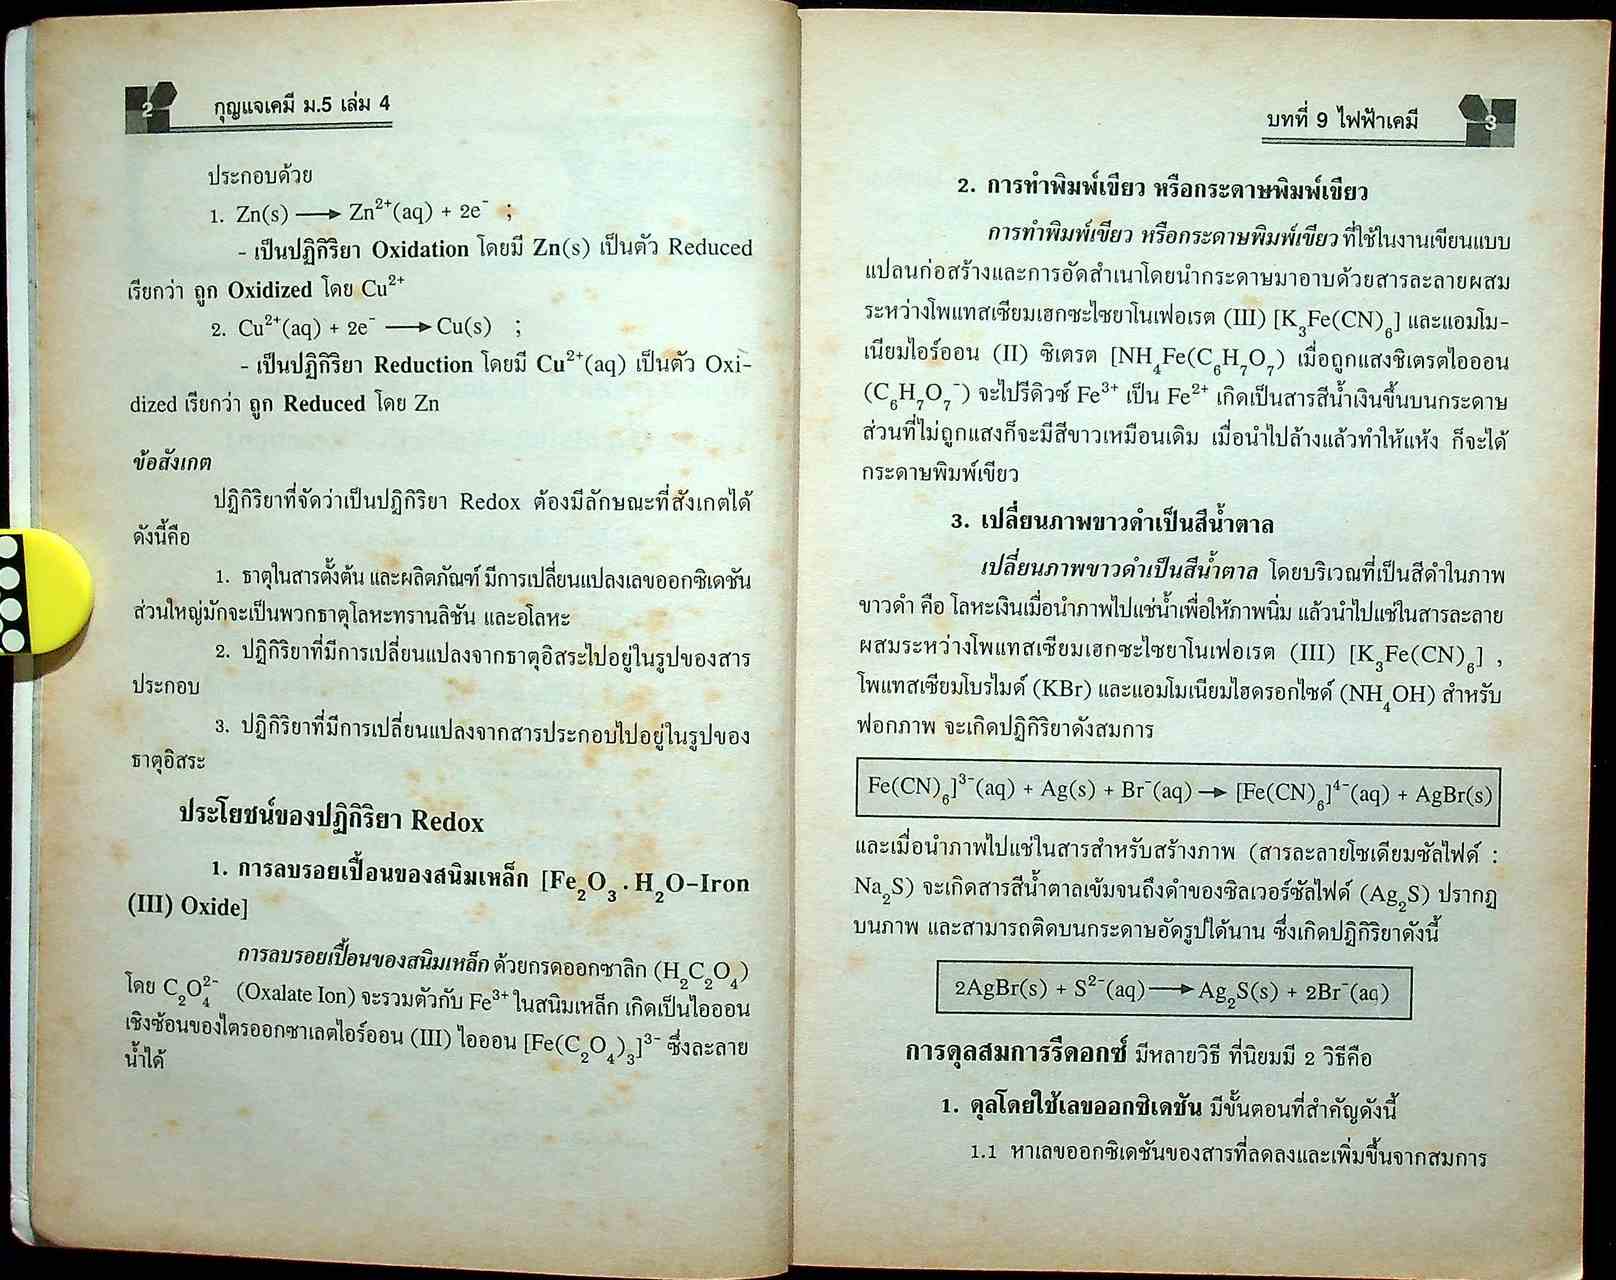 2
กุญแจเคมี ม.5 เล่ม 4
ประกอบด้วย
1. Zn(s) ⟶ Zn²⁺(aq) + 2e⁻ ;
- เป็นปฏิกิริยา Oxidation โดยมี Zn(s) เป็นตัว Reduced
เรียกว่า ถูก Oxidized โดย Cu²⁺
2. Cu²⁺(aq) + 2e⁻ ⟶ Cu(s) ;
- เป็นปฏิกิริยา Reduction โดยมี Cu²⁺(aq) เป็นตัว Oxi-
dized เรียกว่า ถูก Reduced โดย Zn
ข้อสังเกต
ปฏิกิริยาที่จัดว่าเป็นปฏิกิริยา Redox ต้องมีลักษณะที่สังเกตได้
ดังนี้คือ
1. ธาตุในสารตั้งต้น และผลิตภัณฑ์ มีการเปลี่ยนแปลงเลขออกซิเดชัน
ส่วนใหญ่มักจะเป็นพวกธาตุโลหะทรานลิชัน และอโลหะ
2. ปฏิกิริยาที่มีการเปลี่ยนแปลงจากธาตุอิสระไปอยู่ในรูปของสาร
ประกอบ
3. ปฏิกิริยาที่มีการเปลี่ยนแปลงจากสารประกอบไปอยู่ในรูปของ
ธาตุอิสระ
ประโยชน์ของปฏิกิริยา Redox
1. การลบรอยเปื้อนของสนิมเหล็ก [Fe₂O₃ . H₂O-Iron
(III) Oxide]
การลบรอยเปื้อนของสนิมเหล็ก ด้วยกรดออกซาลิก (H₂C₂O₄)
โดย C₂O₄²⁻ (Oxalate Ion) จะรวมตัวกับ Fe³⁺ ในสนิมเหล็ก เกิดเป็นไอออน
เชิงซ้อนของไตรออกซาเลตไอร์ออน (III) ไอออน [Fe(C₂O₄)₃]³⁻ ซึ่งละลาย
น้ำได้
บทที่ 9 ไฟฟ้าเคมี
3
2. การทำพิมพ์เขียว หรือกระดาษพิมพ์เขียว
การทำพิมพ์เขียว หรือกระดาษพิมพ์เขียว ที่ใช้ในงานเขียนแบบ
แปลนก่อสร้างและการอัดสำเนาโดยนำกระดาษมาอาบด้วยสารละลายผสม
ระหว่างโพแทสเซียมเฮกซะไซยาโนเฟอเรต (III) [K₃Fe(CN)₆] และแอมโม-
เนียมไอร์ออน (II) ซิเตรต [NH₄Fe(C₆H₇O₇) เมื่อถูกแสงซิเตรตไอออน
(C₆H₇O₇⁻) จะไปรีดิวซ์ Fe³⁺ เป็น Fe²⁺ เกิดเป็นสารสีน้ำเงินขึ้นบนกระดาษ
ส่วนที่ไม่ถูกแสงก็จะมีสีขาวเหมือนเดิม เมื่อนำไปล้างแล้วทำให้แห้ง ก็จะได้
กระดาษพิมพ์เขียว
3. เปลี่ยนภาพขาวดำเป็นสีน้ำตาล
เปลี่ยนภาพขาวดำเป็นสีน้ำตาล โดยบริเวณที่เป็นสีดำในภาพ
ขาวดำ คือ โลหะเงินเมื่อนำภาพไปแช่น้ำเพื่อให้ภาพนิ่ม แล้วนำไปแช่ในสารละลาย
ผสมระหว่างโพแทสเซียมเฮกซะไซยาโนเฟอเรต (III) [K₃Fe(CN)₆] ,
โพแทสเซียมโบรไมด์ (KBr) และแอมโมเนียมไฮดรอกไซด์ (NH₄OH) สำหรับ
ฟอกภาพ จะเกิดปฏิกิริยาดังสมการ
Fe(CN)₆]³⁻(aq) + Ag(s) + Br⁻(aq) ⟶ [Fe(CN)₆]⁴⁻(aq) + AgBr(s)
และเมื่อนำภาพไปแช่ในสารสำหรับสร้างภาพ (สารละลายโซเดียมซัลไฟด์ :
Na₂S) จะเกิดสารสีน้ำตาลเข้มจนถึงดำของซิลเวอร์ซัลไฟด์ (Ag₂S) ปรากฏ
บนภาพ และสามารถติดบนกระดาษอัดรูปได้นาน ซึ่งเกิดปฏิกิริยาดังนี้
2AgBr(s) + S²⁻(aq) ⟶ Ag₂S(s) + 2Br⁻(aq)
การดุลสมการรีดอกซ์ มีหลายวิธี ที่นิยมมี 2 วิธีคือ
1. ดุลโดยใช้เลขออกซิเดชัน มีขั้นตอนที่สำคัญดังนี้
1.1 หาเลขออกซิเดชันของสารที่ลดลงและเพิ่มขึ้นจากสมการ